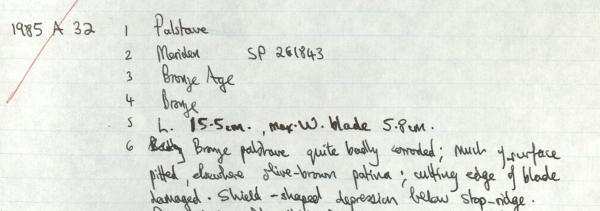 1985 A 32 1 Palstave
2 Meriden SP 261843
3 Bronze Age
4 Bronze
5 L. 15.5cm. , max. W. blade 5.8cm.
6 Bronze palstave quite badly corroded; much of surface
pitted, elsewhere olive-brown patina; cutting edge of blade
damaged. Shield-shaped depression below stop-ridge.